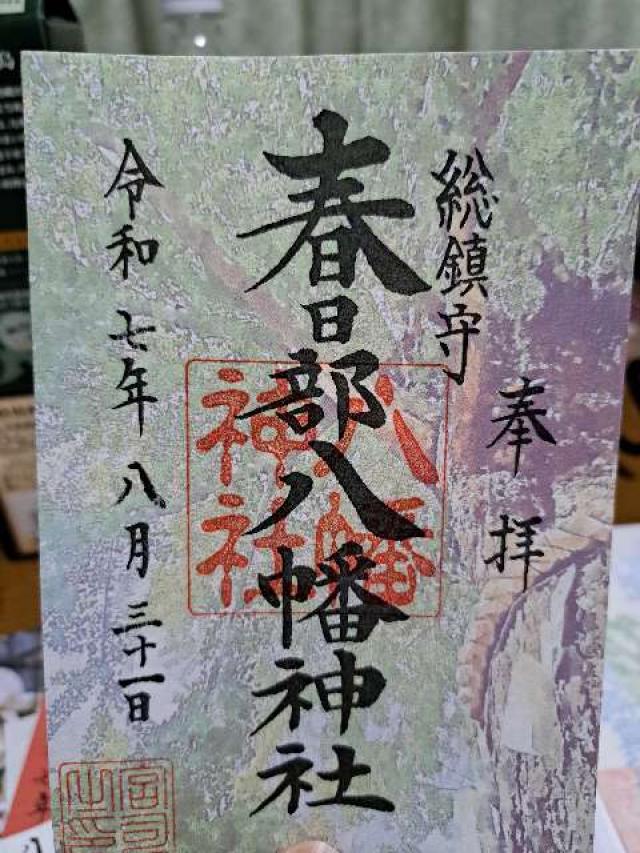 奉拝
総鎮守
春日部八幡神社
八幡
神社
令和七年八月三十一日
宮司
之印